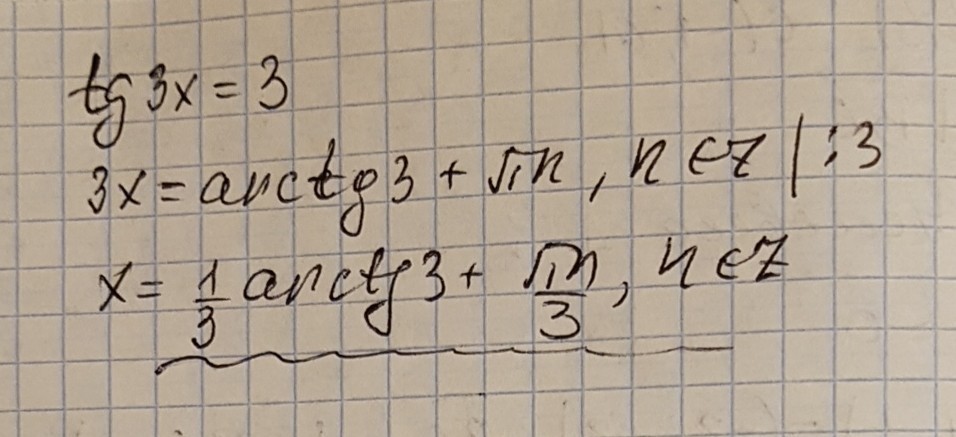 tg 3x = 3
3x = arctg 3 + πn, n ∈ Z | : 3
x = 1/3 arctg 3 + πn/3, n ∈ Z